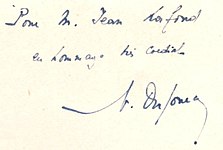 Pour M. Jean Lafond
en hommage très cordial
A. Dufour